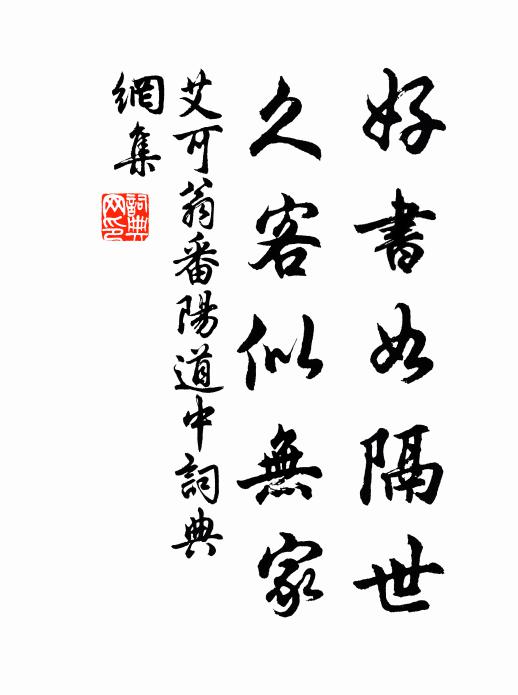 好書如隔世
久客似無家
艾可翁番陽道中詞典
網集
詞典網印